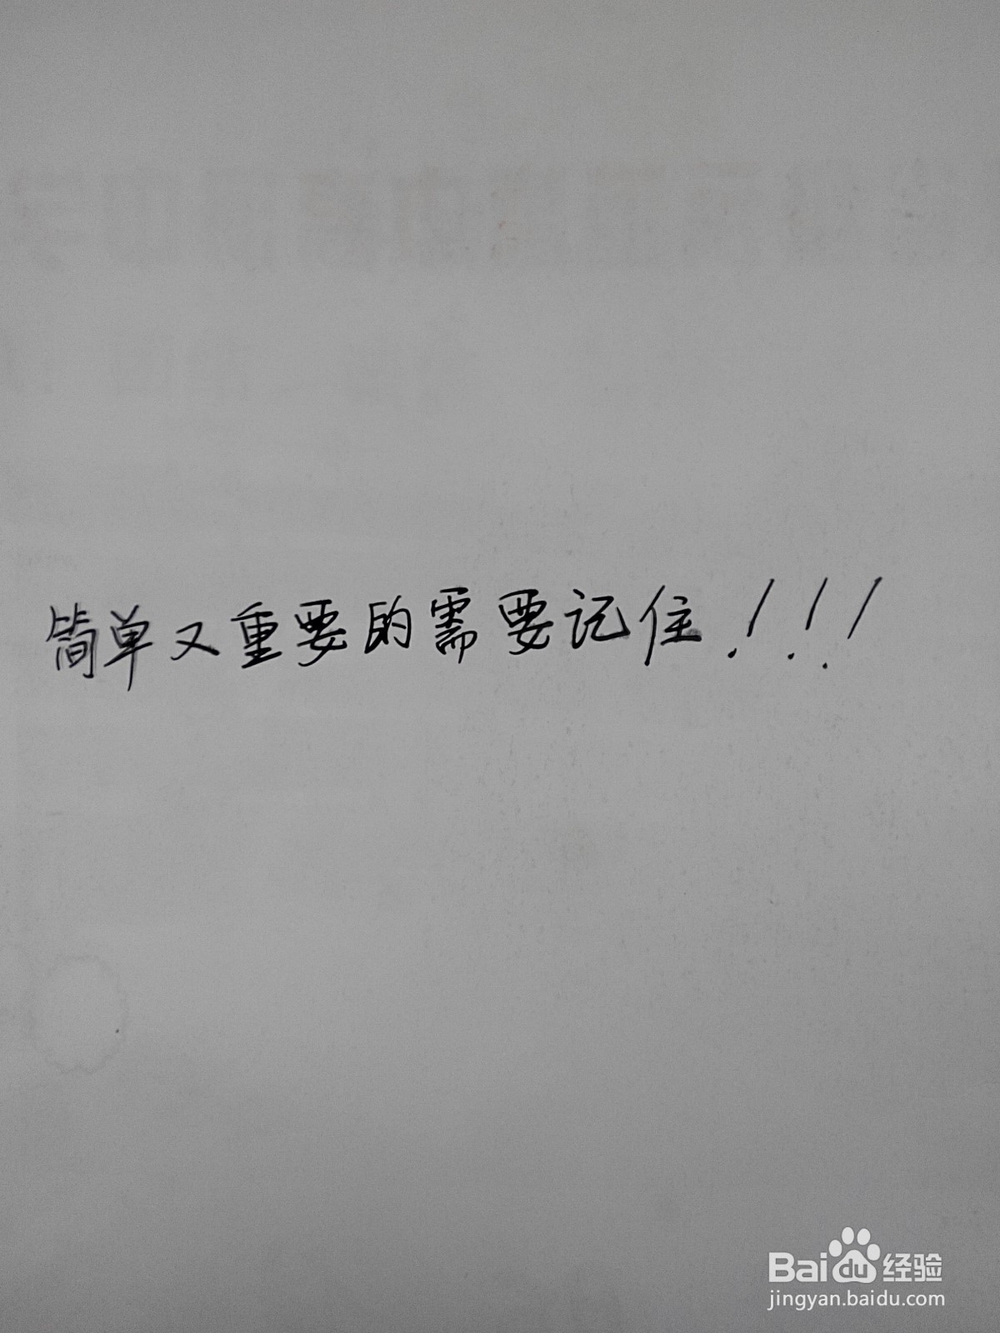 简单又重要的需要记住！！！
Baidu经验
jingyan.baidu.com